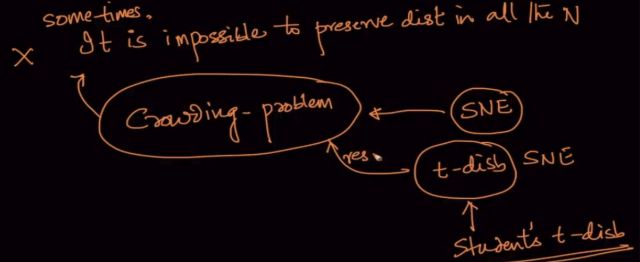 sometimes.
X It is impossible to preserve dist in all the N
Crowding-problem
SNE
res
t-disb SNE
Student's t-disb